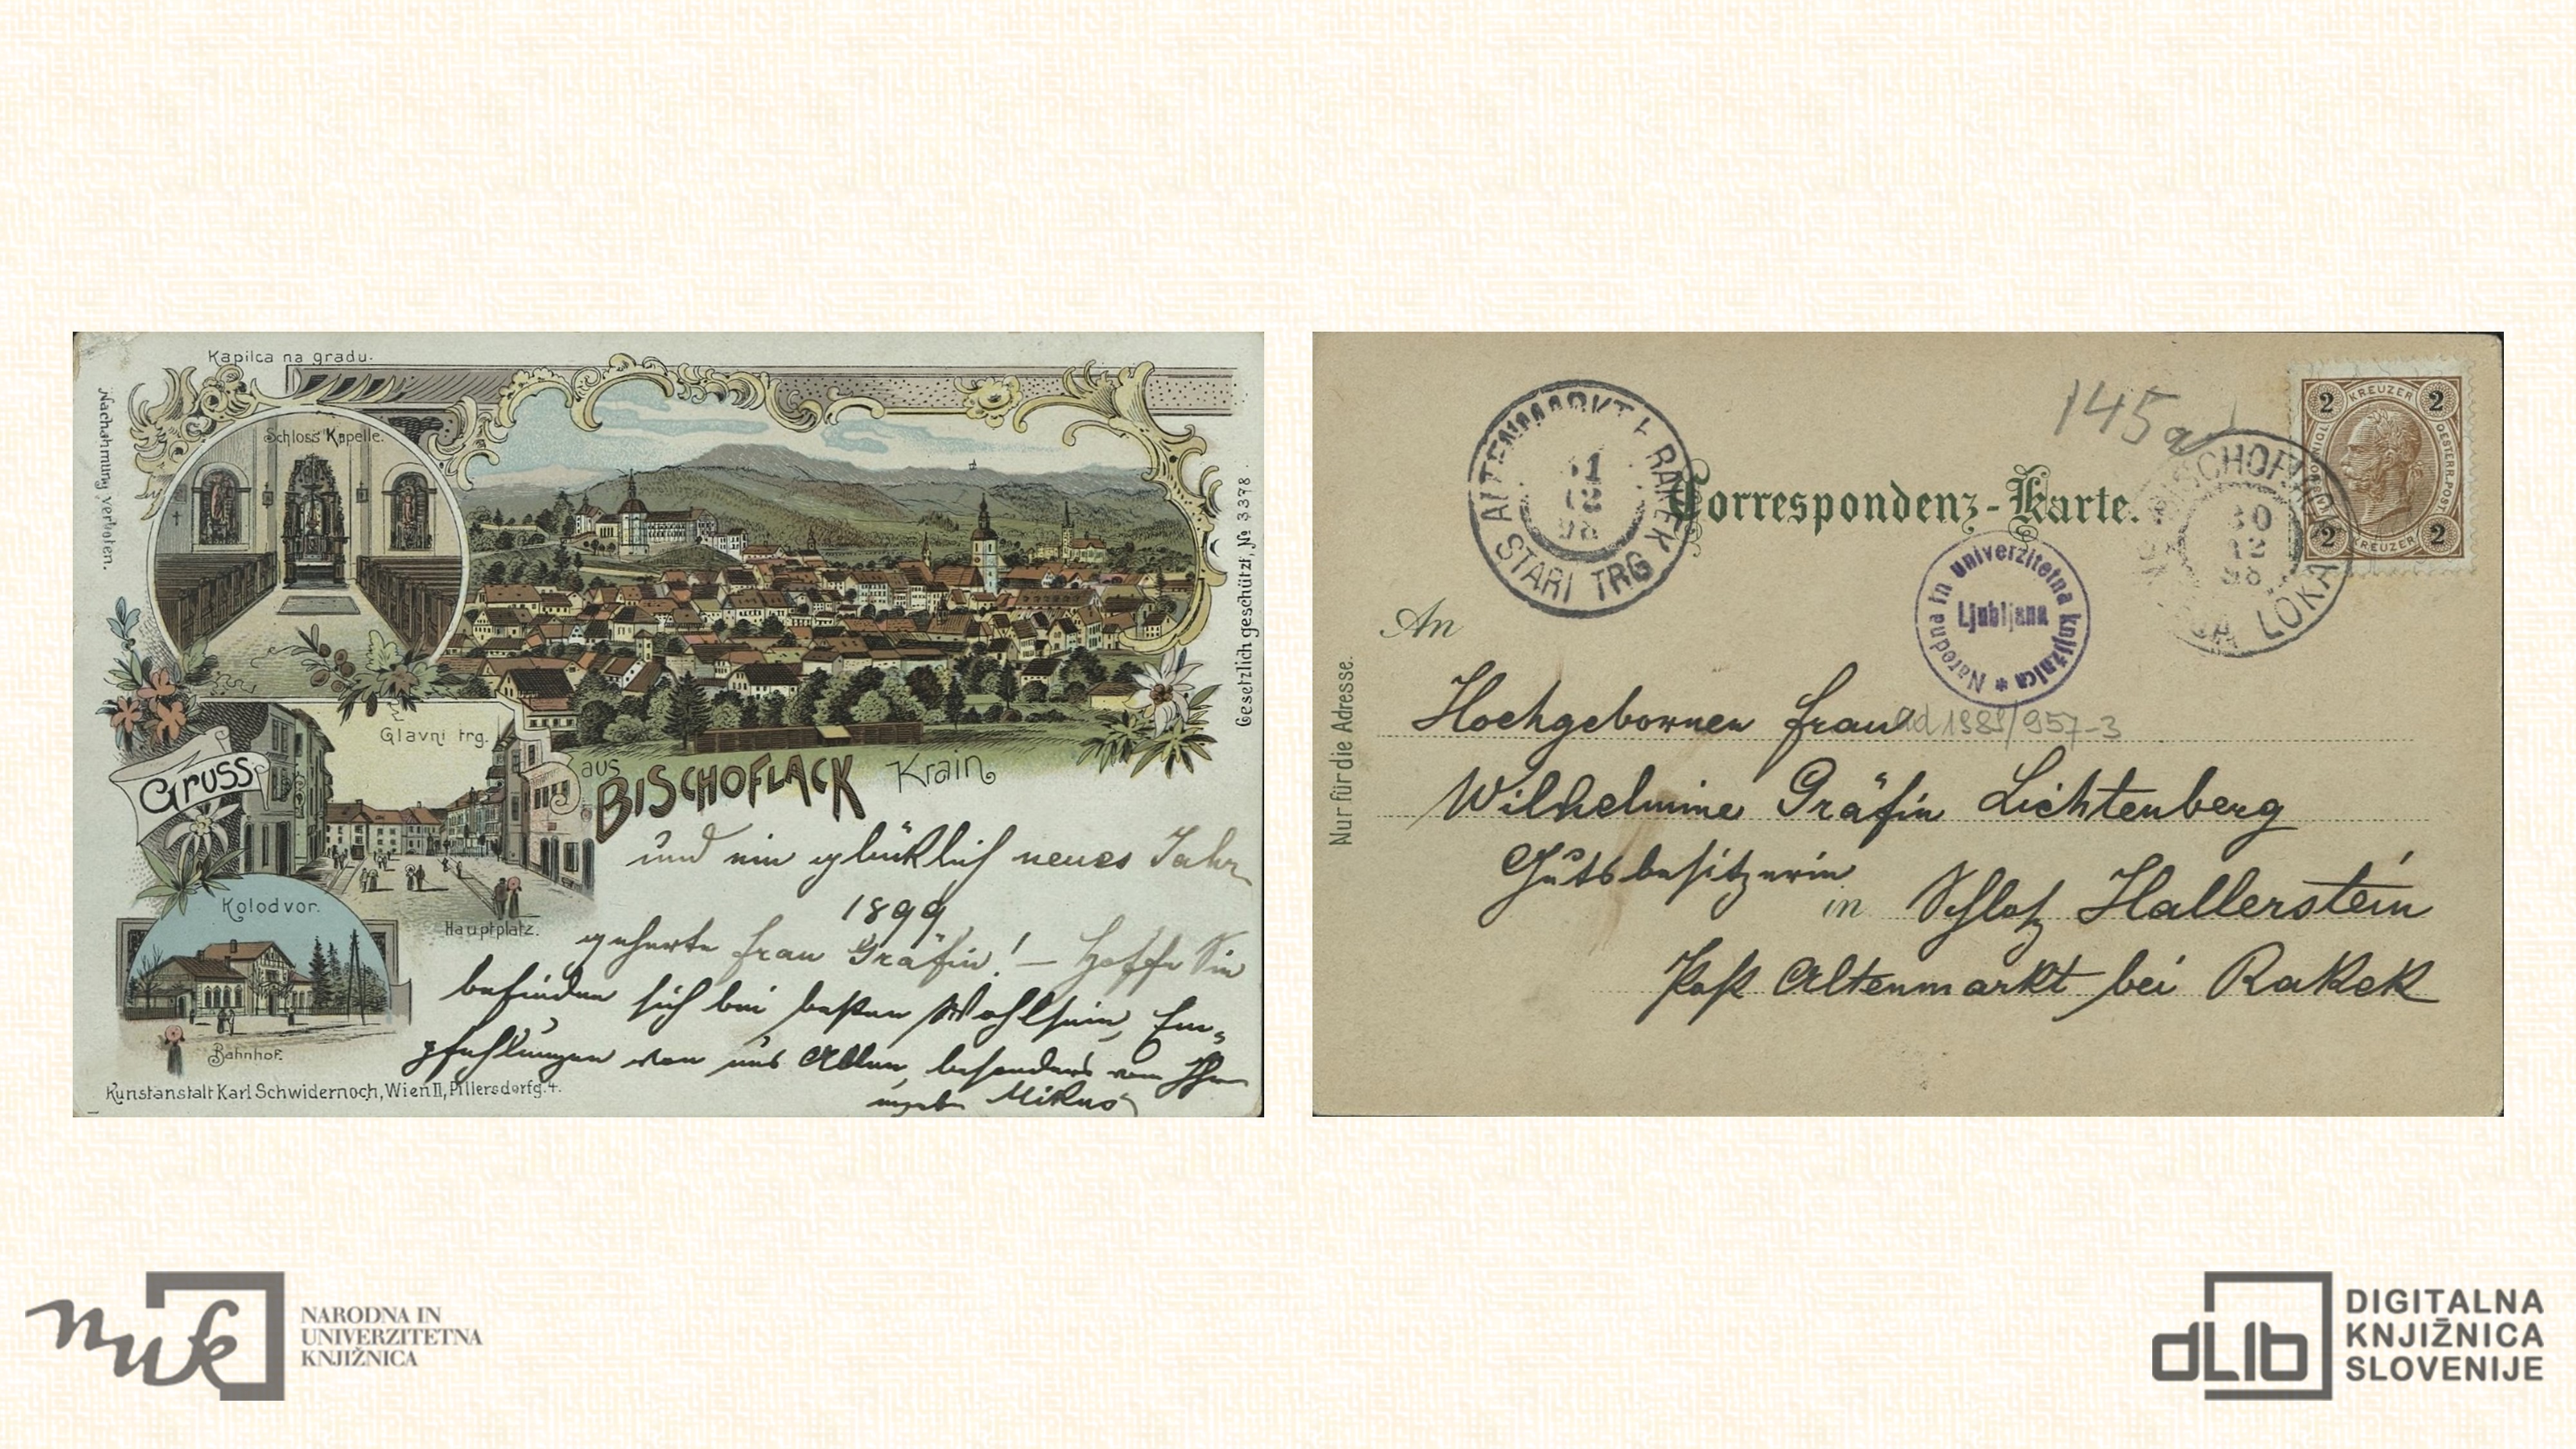 Kapilca na gradu.
Schloss Kapelle.
Nachahmung verboten.
Gesetzlich geschützt, № 3378.
Glavni trg.
Gruss
aus
BISCHOFLACK Krain
und ein glücklich neues Jahr
1899
geherte Frau Gräfin! — Hoffe Sie
befinden sich bei besten Wohlsein, Em-
pfehlungen von uns Allen, besonders vom Ihrn
Mikus
Kolodvor.
Hauptplatz.
Bahnhof.
Kunstanstalt Karl Schwidernoch, Wien II, Pillersdorfg. 4.
ALTENMARKT b. RAKEK
31
12
98
STARI TRG
145a
KREUZER
2 2
OESTERR. POST
2 2
KREUZER
Correspondenz-Karte.
BISCHOFLACK
30
12
98
LOKA
Narodna in univerzitetna knjižnica *
Ljubljana
An
Nur für die Adresse.
Hochgebornen Frau
ad 1988/957-3
Wilhelmine Gräfin Lichtenberg
Gutsbesitzerin
in Schloß Hallerstein
Post Altenmarkt bei Rakek
nuk
NARODNA IN
UNIVERZITETNA
KNJIŽNICA
dLib
DIGITALNA
KNJIŽNICA
SLOVENIJE